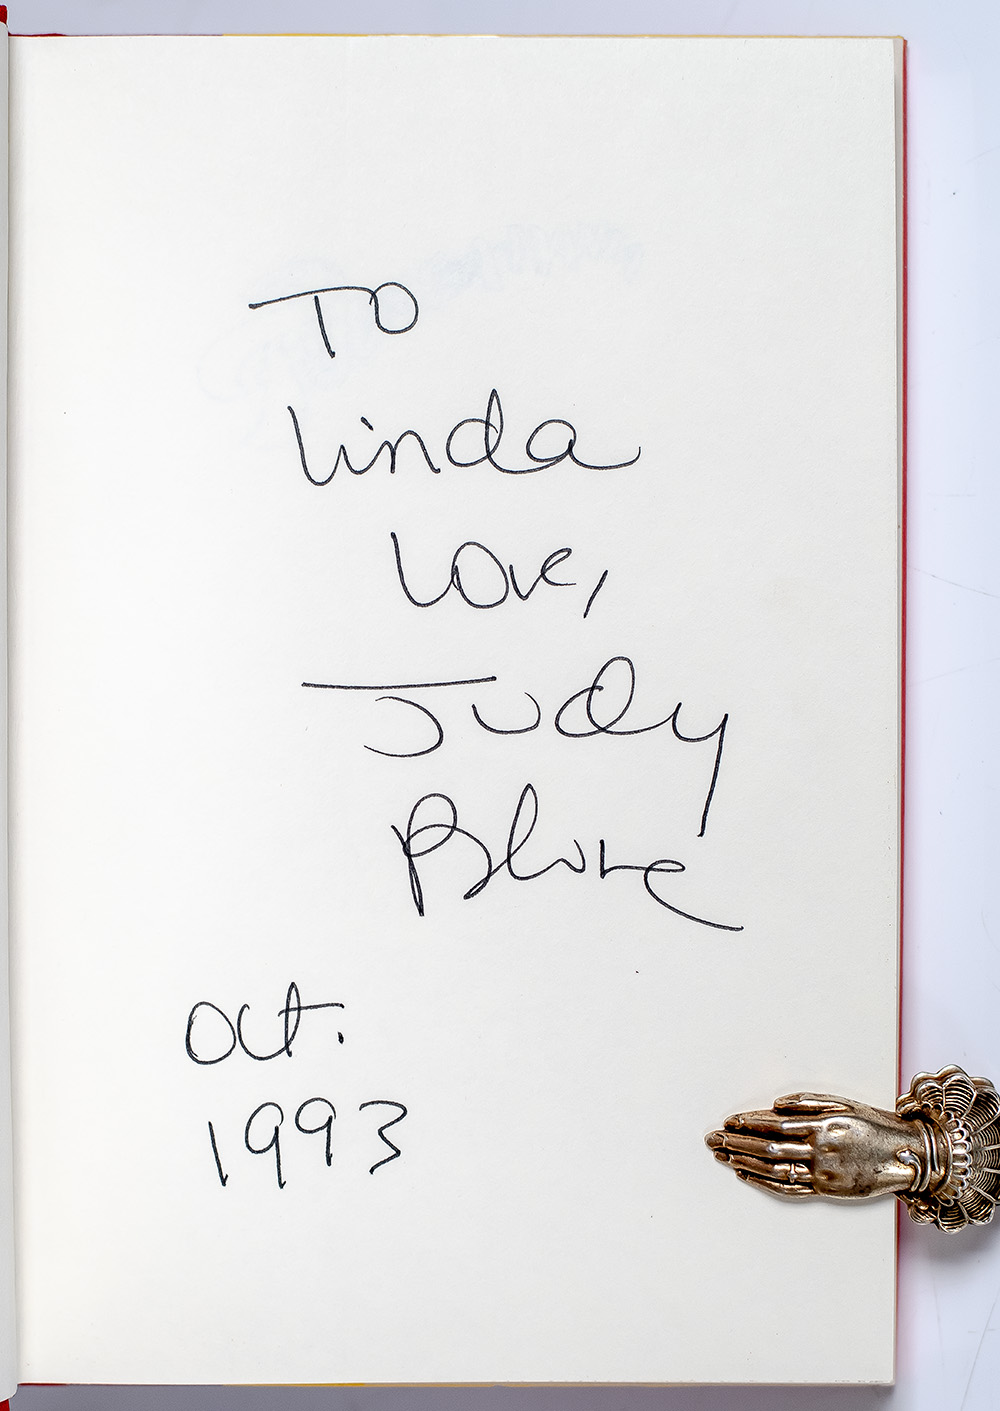 To
Linda
Love,
Judy
Blume
Oct.
1993